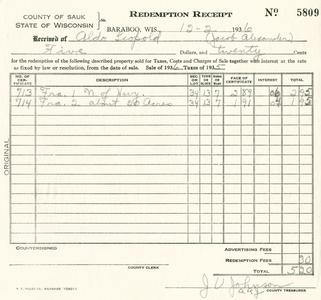 COUNTY OF SAUK
STATE OF WISCONSIN
REDEMPTION RECEIPT
Nº 5809
BARABOO, WIS., 12-2 1936
Received of Aldo Leopold (Jacob Alexander)
Five Dollars, and twenty Cents
for the redemption of the following described property sold for Taxes, Costs and Charges of Sale together with interest at the rate
as fixed by law or resolution, from the date of sale. Sale of 1936 Taxes of 1935
NO. OF CERTIFICATE DESCRIPTION SEC. OR LOT FACE OF CERTIFICATE INTEREST TOTAL
713 Fra. 1 N. of 34 13 7 2 89 06 2 95
714 Fra. 2 about 50 Acres 34 13 7 1 91 04 1 95
ORIGINAL
COUNTERSIGNED
Advertising Fees
Redemption Fees 30
Total 5 20
COUNTY CLERK
J V Johnson
COUNTY TREASURER